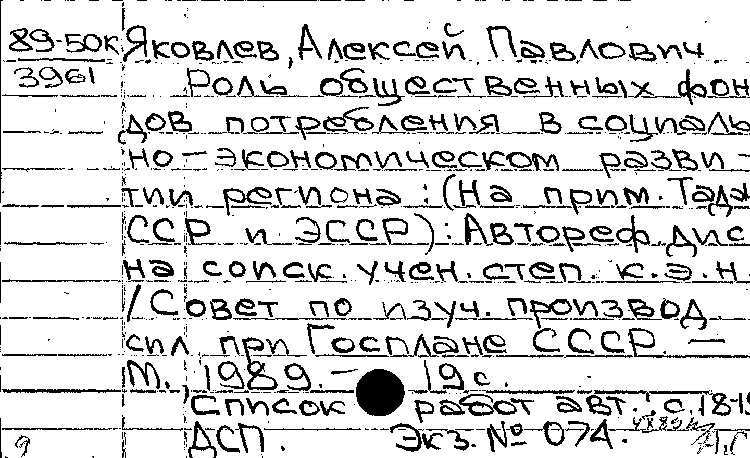 89-50К Яковлев, Алексей Павлович
3961 Роль общественных фон
дов потребления в социаль
но-экономическом разви-
тии региона : (На прим. Тадж
ССР и ЭССР) : Автореф. дис
на соиск. учен. степ. к.э.н
/ Совет по изуч. производ.
сил при Госплане СССР. —
М., 1989. — 19 с.
Список работ авт.: с. 18-19
9 ДСП. Экз. № 074.